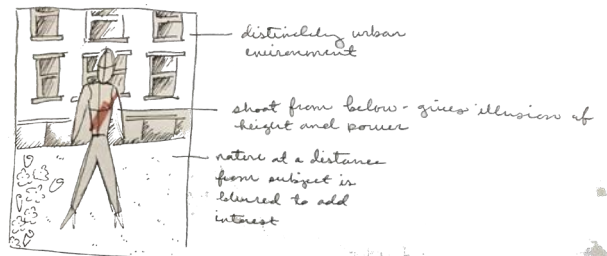 distinctly urban
environment
shoot from below - gives illusion of
height and power
nature at a distance
from subject is
blurred to add
interest